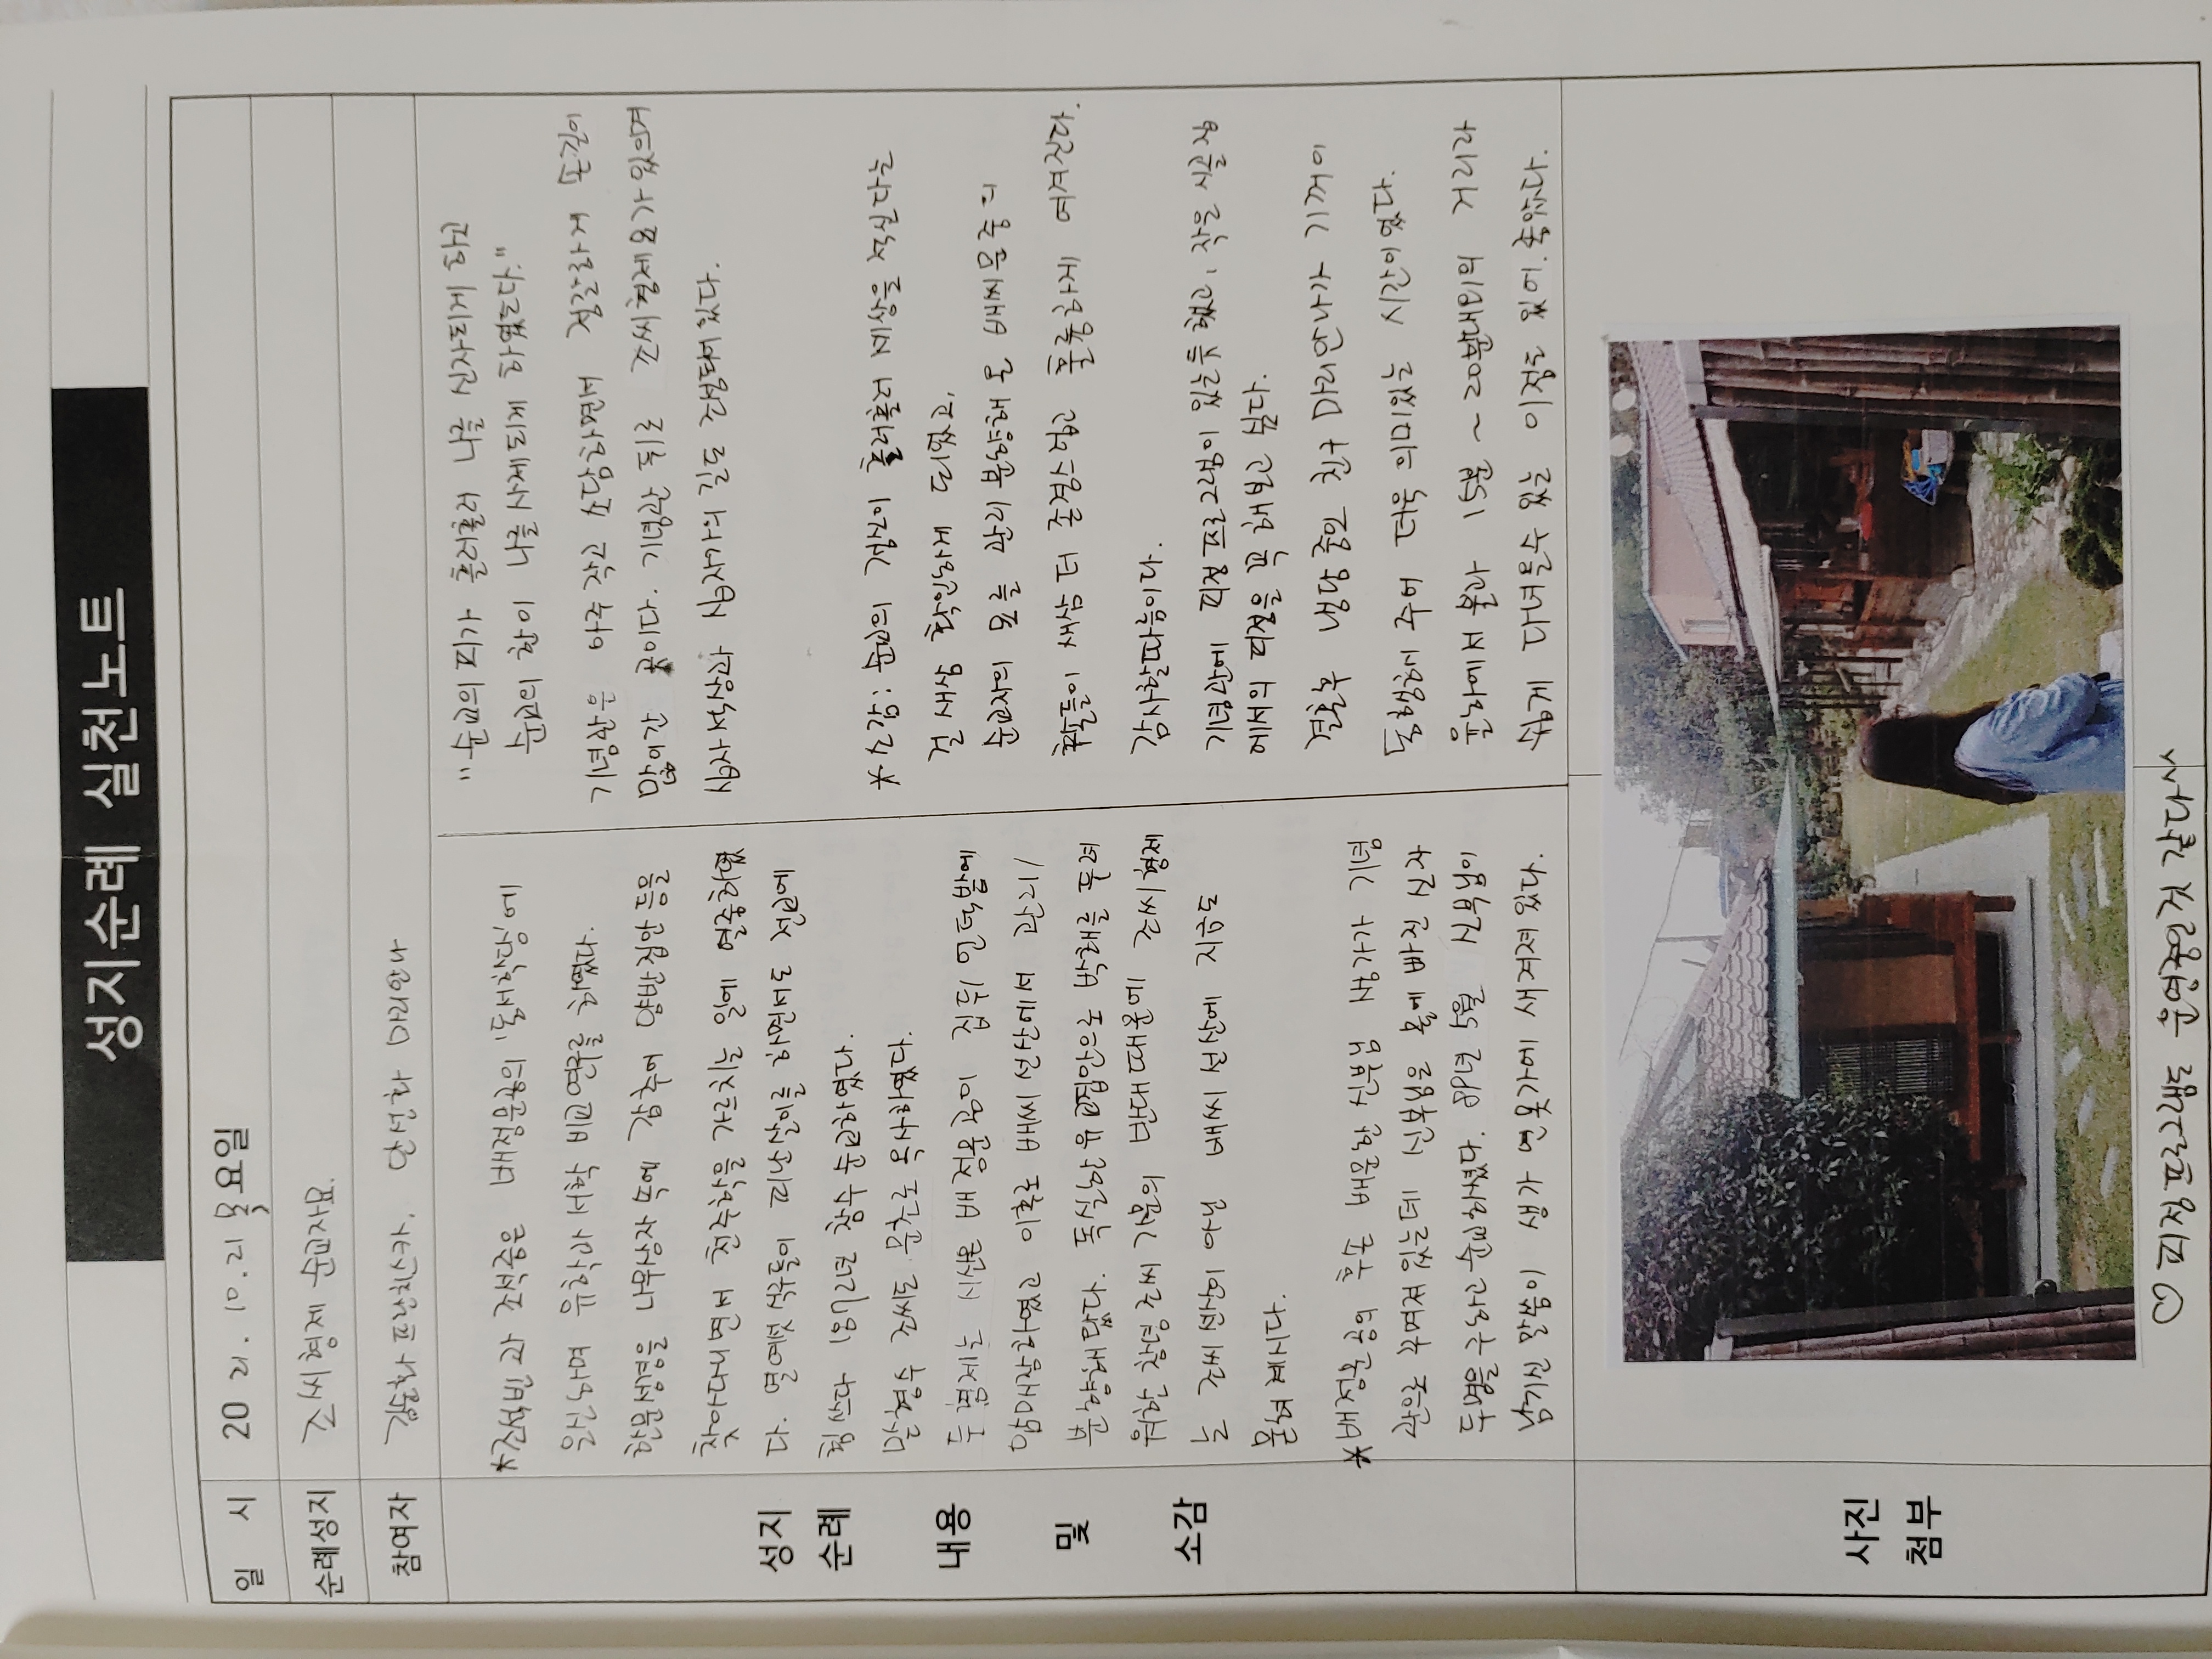 성지순례 실천노트
일 시
20 21. 10. 21 목요일
순례성지
조씨형제 순교자묘.
참여자
김순화 프란치스카, 안선화 마리안나
성지
순례
내용
및
소감
*조석빈과 조석증은 배정문공의 '동서학당'에
은신하며 유학과 서학 비교연구를 하였다.
한문성경을 나무상자 속에 감추어 양반집안 등을
찾아다니면서 천주학을 가르치는 일에 열중하였
다. 열여섯 식구들이 피난살이를 하면서도 전교에
힘쓰다 1872년 참수 순교하였다.
맏형수 조씨도 문초로 옥사하였다.
두 형제는 시신은 배정문공이 집뒤 언덕밭에
암매장하였고 이후로 배씨 선산에서 관리/
분향해 왔다. 독실한 유교집안으로 박해를 두려
워한 창녕조씨 가문의 반대때문에 조씨형제
는 조씨 선산이 아닌 배씨 선산에 지금도
묻혀 계시다.
*배정문공의 후손 배문한 신부님 생가가 기념
관으로 꾸며져 있는데 신부님은 물에 빠진 신자
두명을 구하고 순교하셨다. 89년 5월 신부님이
남기신 말씀이 생가 연못가에 새겨져 있다.
"순교의 피가 흘러흘러 나를 신자되게 하고
순교의 한이 나를 사제되게 하였도다."
기념관은 아주 작고 소담하면서 정갈하게 손길이
많이간 곳이다. 기념관 뒤로 조씨형제묘가 있으며
십자석상과 십자가의 길도 조성되어 있다.
*소감: 순교의 정신이 흘러흘러 세상을 적신다는
걸 새삼 확인하게 되었고,
순교자의 묘를 관리 분향해 온 배씨문중의
후손들이 새삼 더 존경스럽고 훌륭하게 여겨진다.
감사할따름이다.
기념관에 피정 프로그램이 있는듯 했고, 작은 시골집
에서의 피정을 꼭 해보고 싶다.
결혼후 냉담중인 친구 마리안나가 기꺼이
동행해 주어 더욱 의미있는 시간이었다.
율하에서 불과 15분~20분대외의 거리라
쉽게 다녀올수 있는 이점도 있어.좋았다.
사진
첨부
♡ 피정프로그램도 운영중인것 같다^^